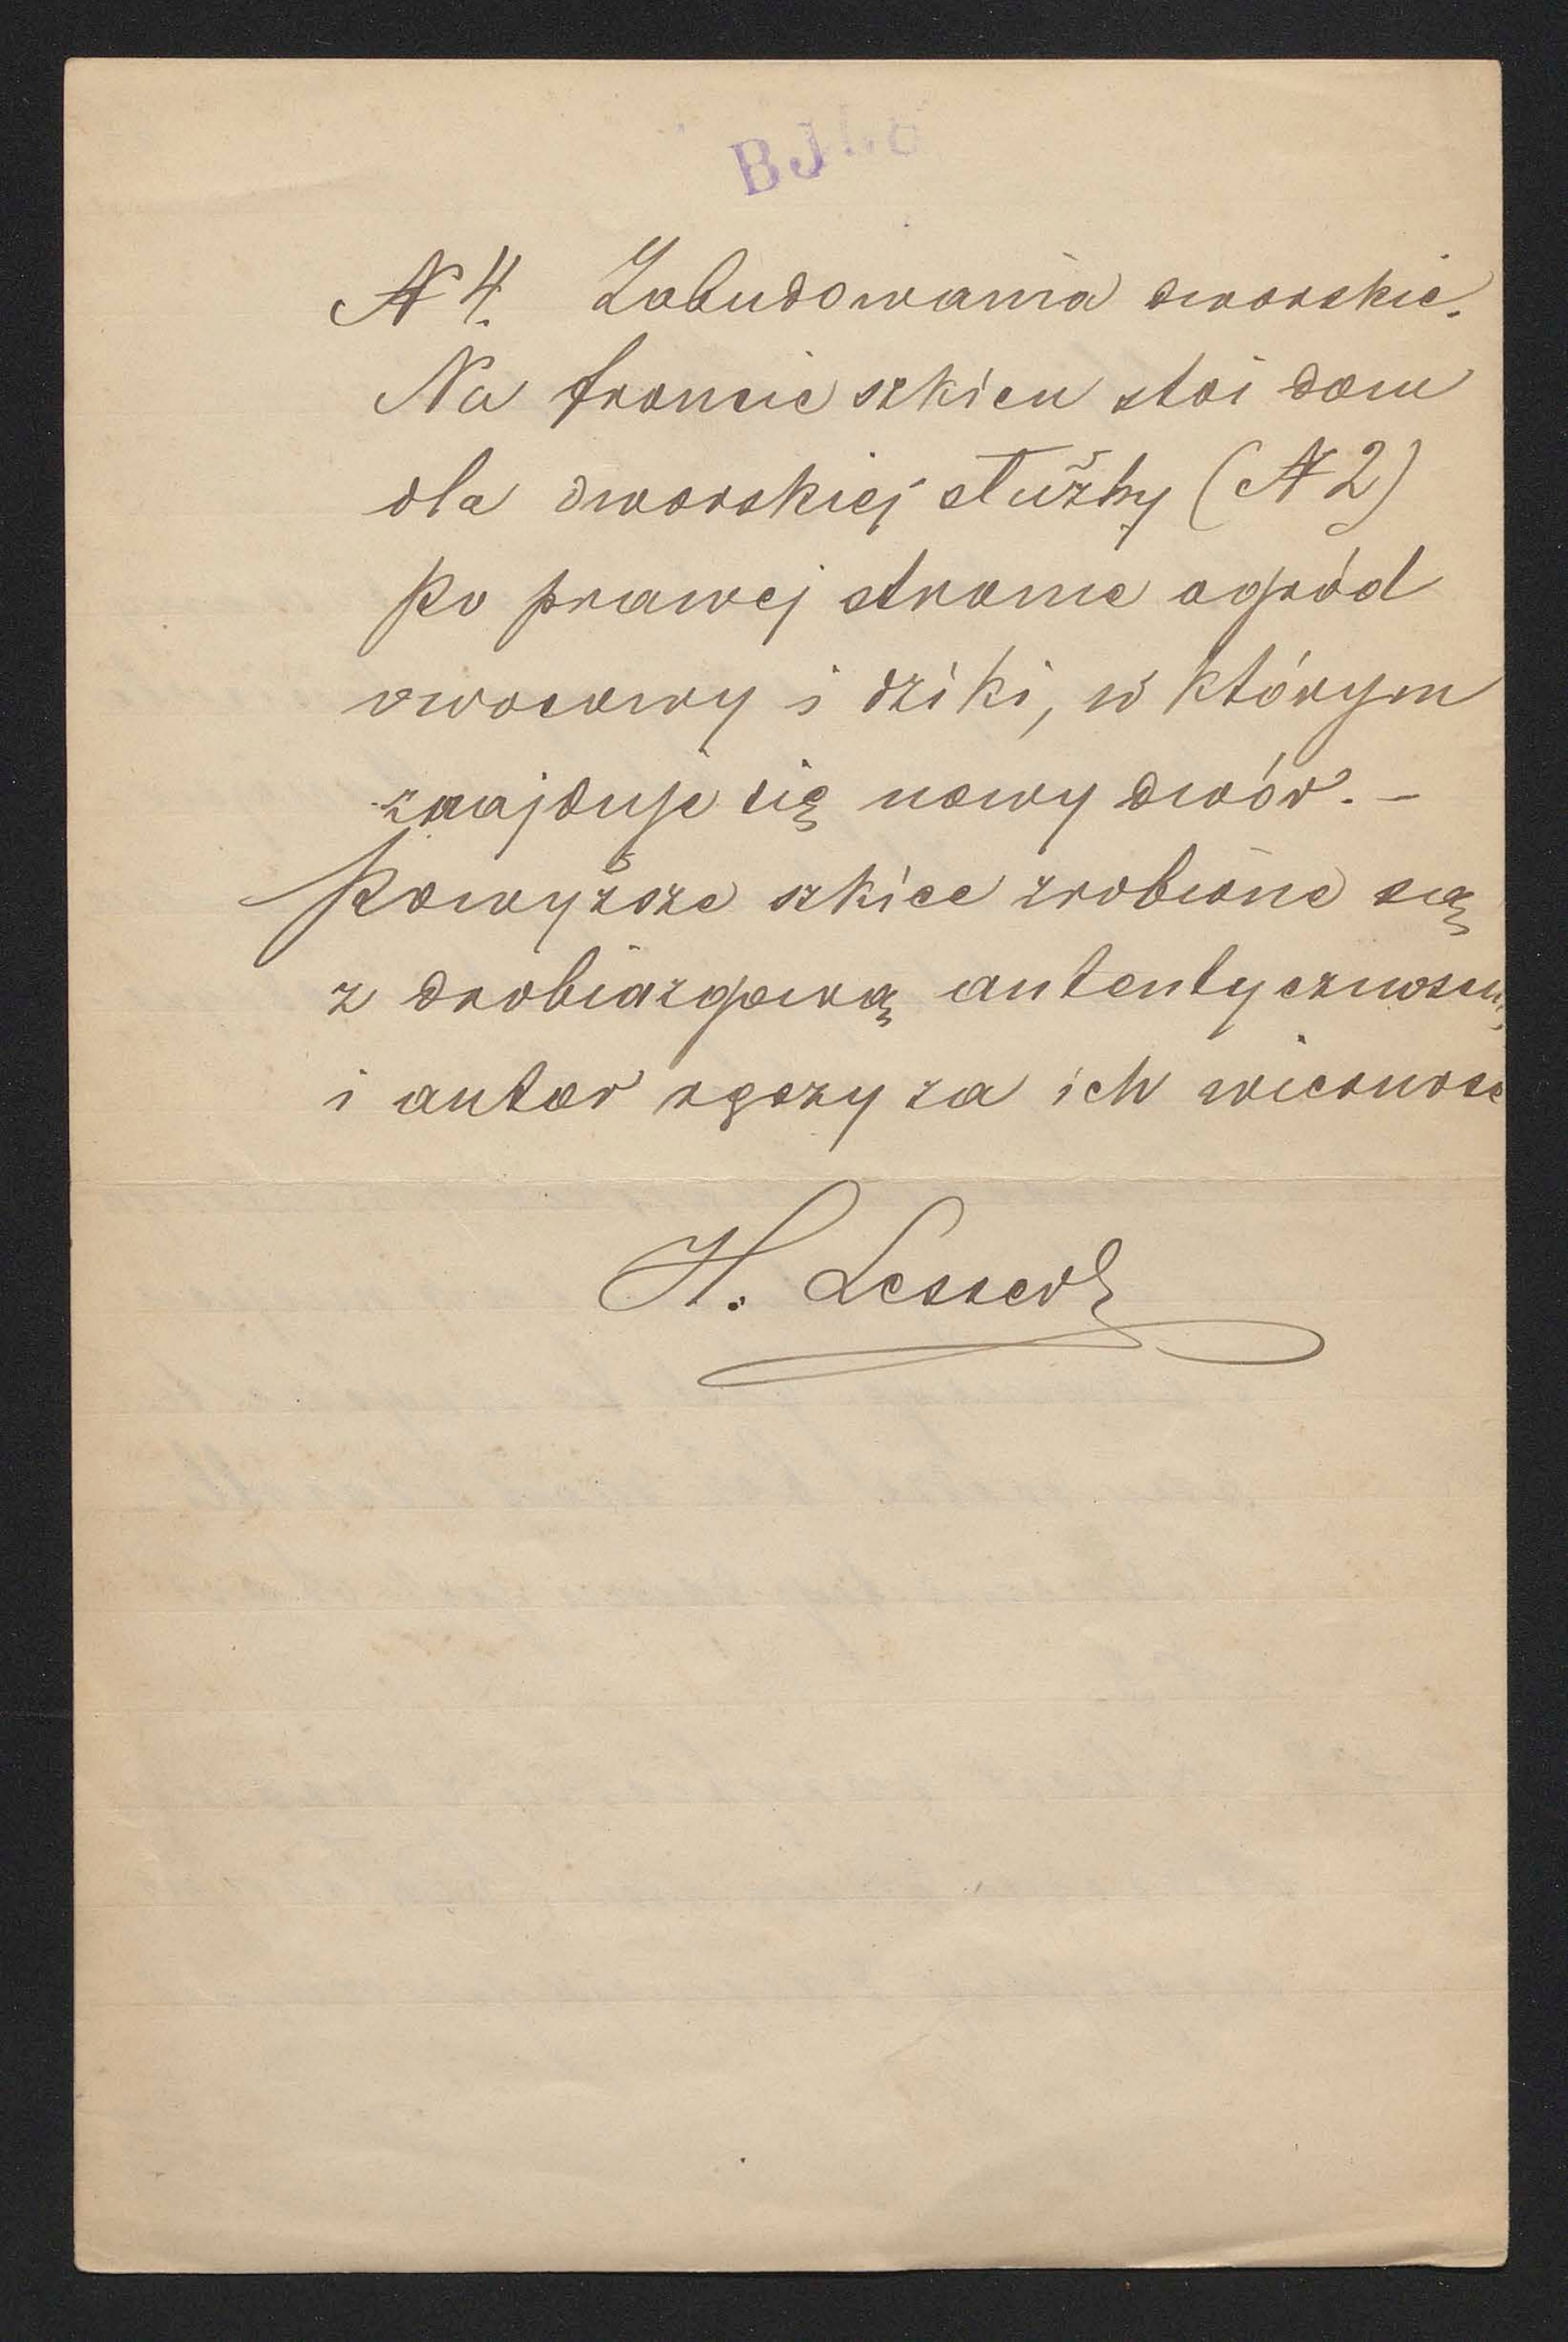 BJ
N 4. Zabudowania dworskie.
Na froncie szkicu stoi dom
dla dworskiej służby (N 2)
Po prawej stronie ogród
owocowy i dziki, w którym
znajduje się nowy dwór. –
Powyższe szkice zrobione są
z drobiazgową autentycznością
i autor ręczy za ich wierność
H. Lesser